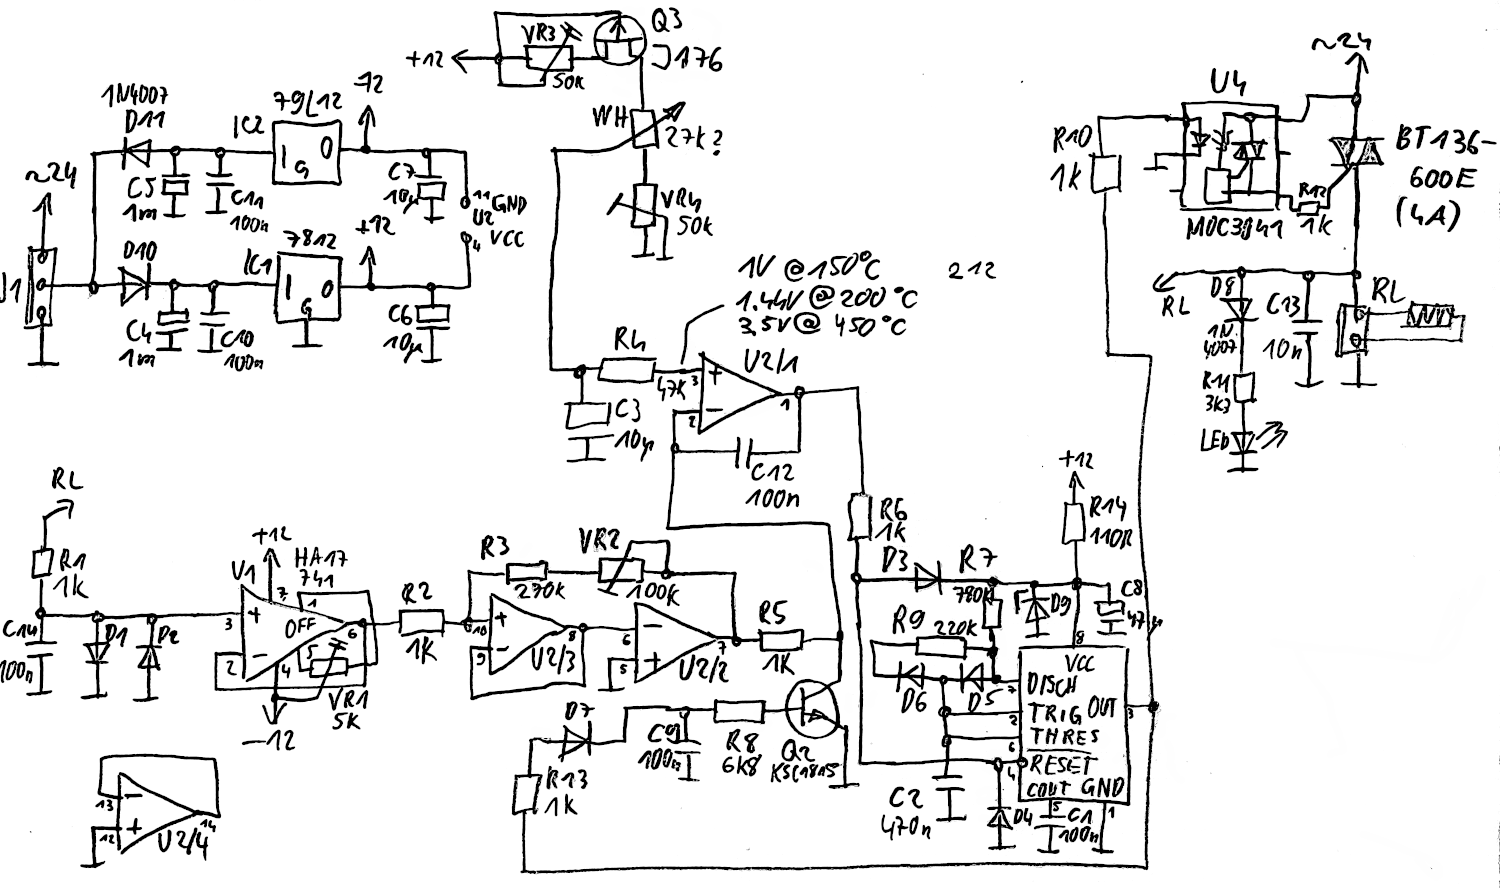 Q3
J176
VR3
50K
+12
~24
U4
1N4007
D11
79L12
-12
IC2
I
O
G
C5
1m
C11
100n
C7
10µ
11 GND
U2
4 VCC
WH
27K?
VR4
50K
R10
1K
MOC3041
R12
1K
BT136-
600E
(4A)
~24
J1
D10
7812
+12
IC1
I
O
G
C4
1m
C10
100n
C6
10µ
1V @ 150°C
1.44V @ 200°C
3.5V @ 450°C
212
RL
D8
1N
4007
C13
10n
RL
R11
3K3
LED
R4
47K
3
+
-
2
U2/1
1
C3
10µ
C12
100n
R6
1K
+12
R14
110R
RL
R1
1K
C14
100n
D1
D2
+12
HA17
741
U1
7
1
3
+
OFF
6
2
-
4
5
VR1
5K
-12
R2
1K
R3
270K
VR2
100K
10
+
9
-
8
U2/3
6
-
5
+
7
U2/2
R5
1K
D3
R7
780K
D9
C8
47µ
R9
220K
D6
D5
8
VCC
7
DISCH
2
TRIG
OUT
3
6
THRES
4
RESET
COUT
GND
5
1
C2
470n
D4
C1
100n
D7
C9
100n
R8
6K8
Q2
KSC1815
R13
1K
13
-
12
+
14
U2/4